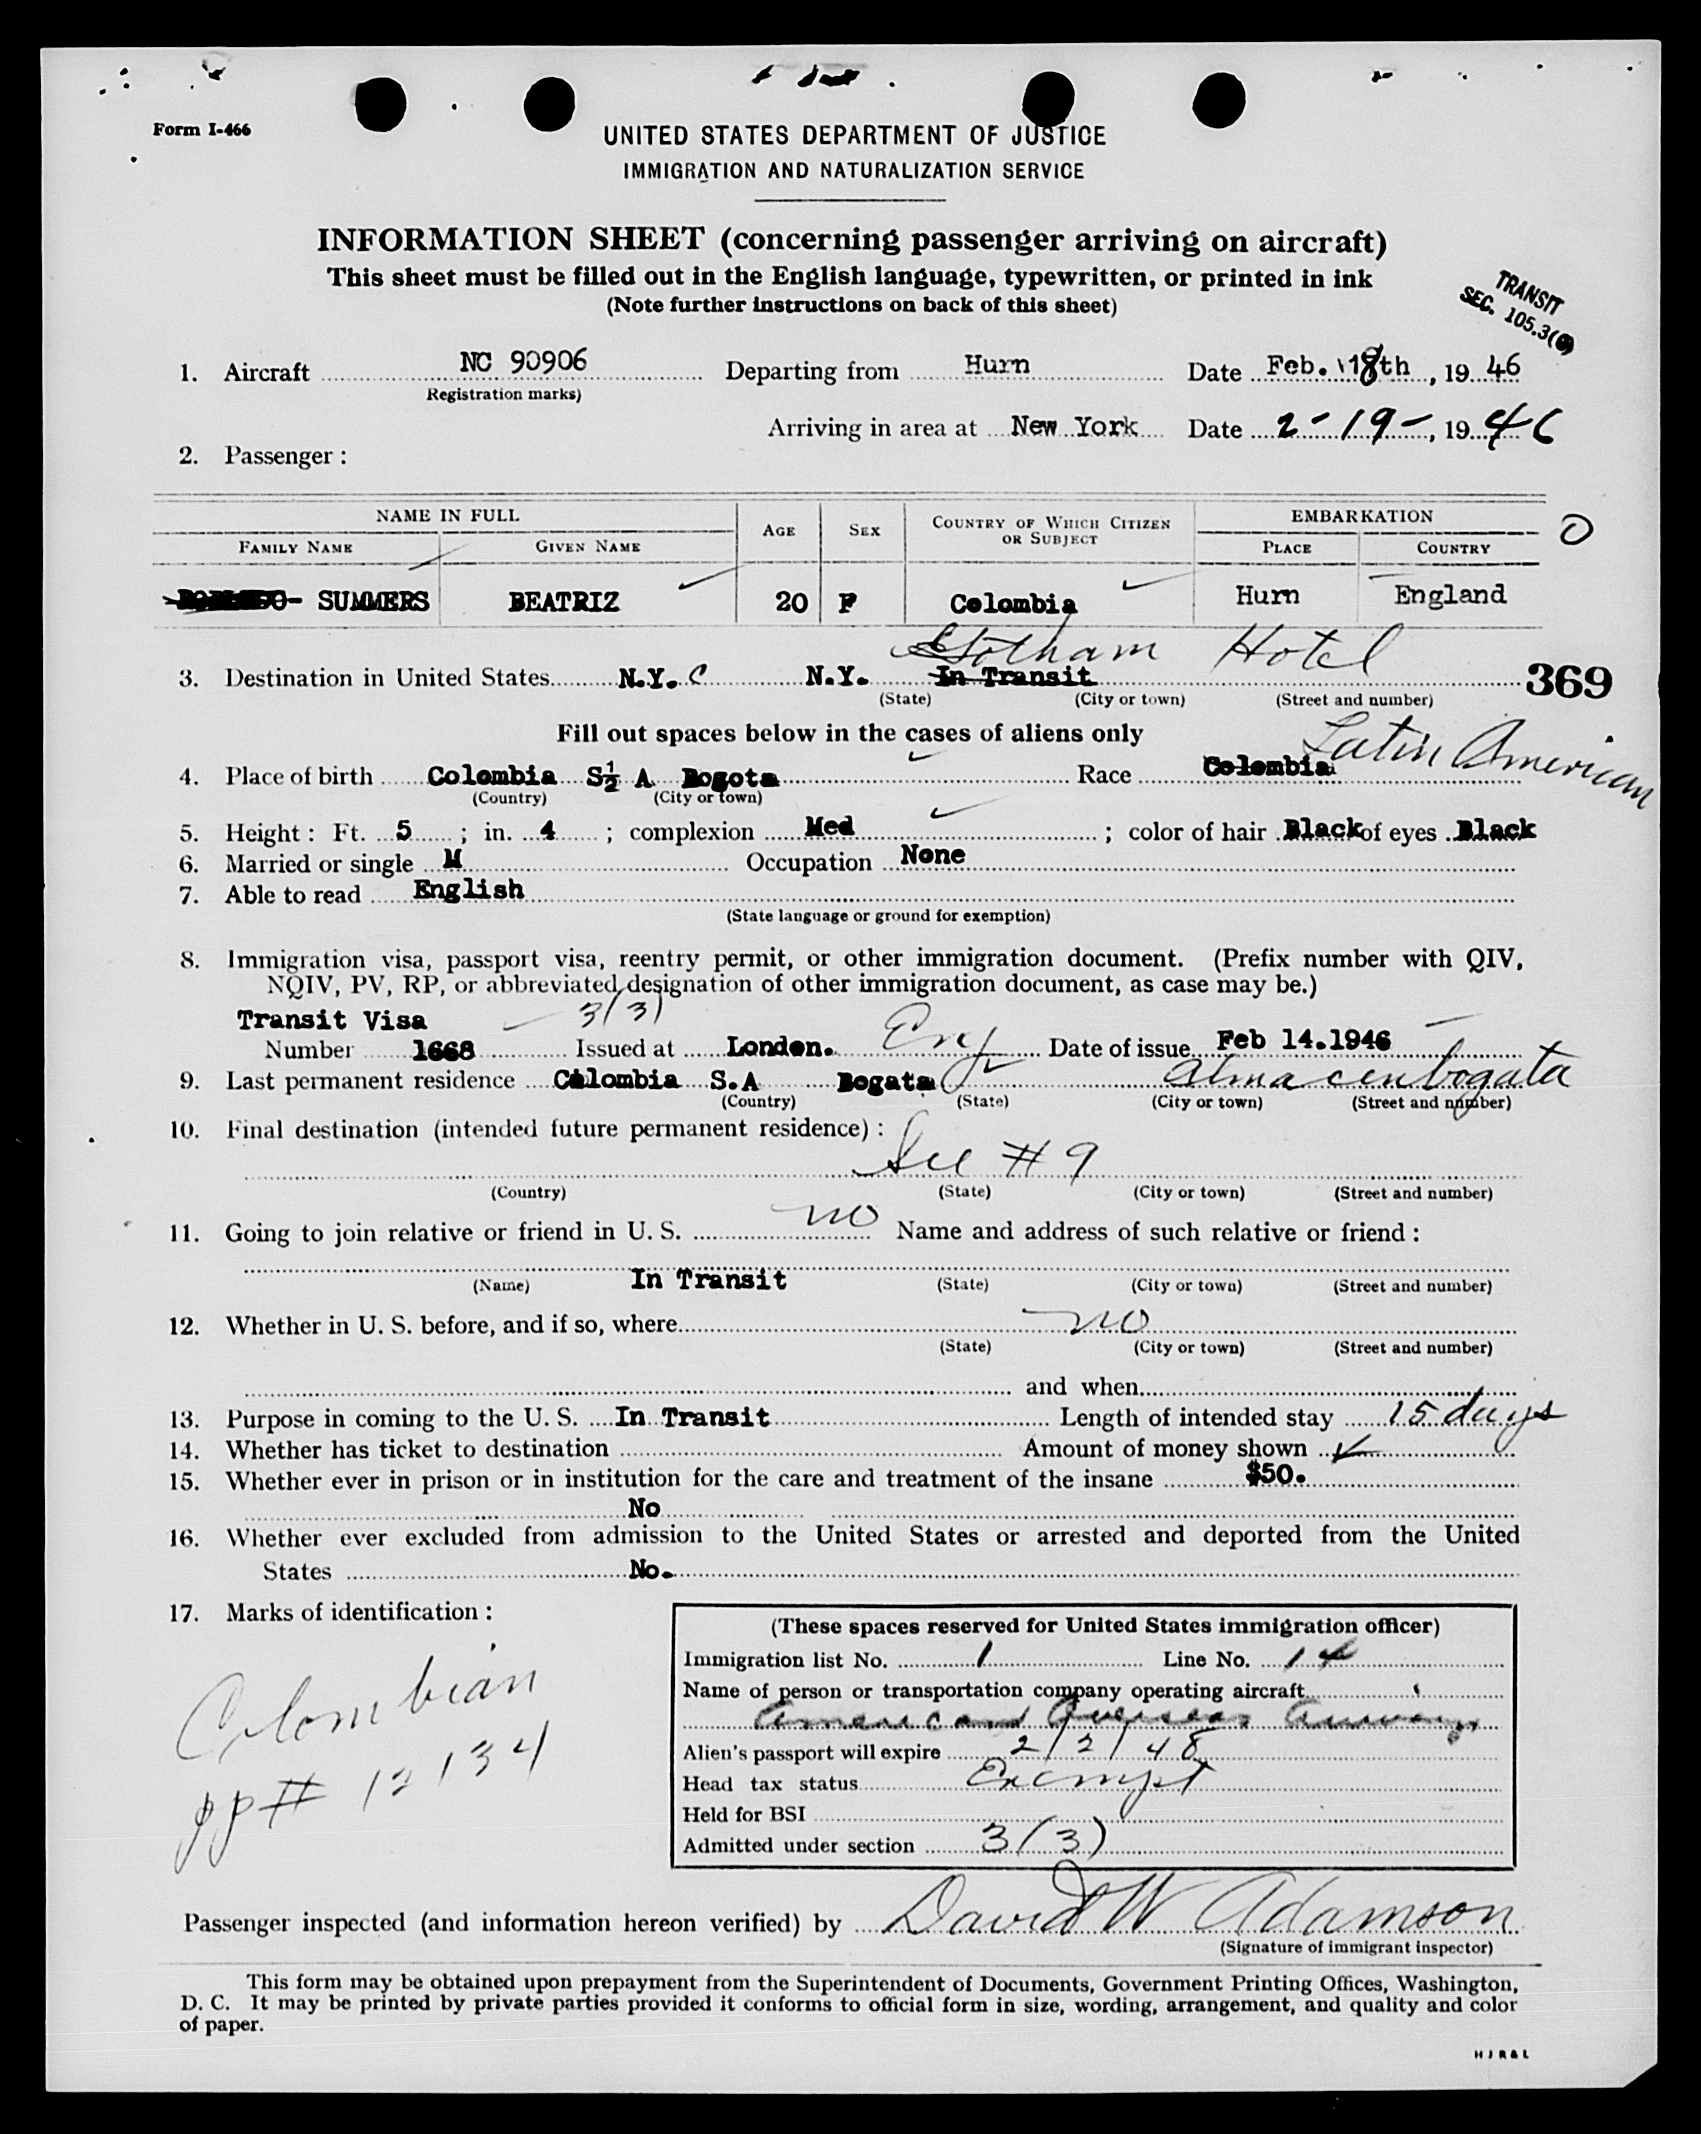 Form I-466
UNITED STATES DEPARTMENT OF JUSTICE
IMMIGRATION AND NATURALIZATION SERVICE
INFORMATION SHEET (concerning passenger arriving on aircraft)
This sheet must be filled out in the English language, typewritten, or printed in ink
(Note further instructions on back of this sheet)
TRANSIT
SEC. 105.3
1. Aircraft NC 90906 Departing from Hurn Date Feb. 18th, 19 46
(Registration marks)
Arriving in area at New York Date 2-19-, 19 46
2. Passenger :
NAME IN FULL AGE SEX COUNTRY OF WHICH CITIZEN OR SUBJECT EMBARKATION
FAMILY NAME GIVEN NAME PLACE COUNTRY
SUMMERS BEATRIZ 20 F Colombia Hurn England
Gotham Hotel
3. Destination in United States N.Y. C N.Y. In Transit 369
(State) (City or town) (Street and number)
Fill out spaces below in the cases of aliens only
Latin American
4. Place of birth Colombia S½ A Bogota Race Colombia
(Country) (City or town)
5. Height : Ft. 5 ; in. 4 ; complexion Med ; color of hair Black of eyes Black
6. Married or single M Occupation None
7. Able to read English
(State language or ground for exemption)
8. Immigration visa, passport visa, reentry permit, or other immigration document. (Prefix number with QIV,
NQIV, PV, RP, or abbreviated designation of other immigration document, as case may be.)
Transit Visa 3(3)
Number 1668 Issued at London. Eng Date of issue Feb 14.1946
9. Last permanent residence Colombia S.A Bogata
(Country) (State) (City or town) (Street and number)
10. Final destination (intended future permanent residence) :
See # 9
(Country) (State) (City or town) (Street and number)
11. Going to join relative or friend in U. S. no Name and address of such relative or friend :
(Name) In Transit (State) (City or town) (Street and number)
12. Whether in U. S. before, and if so, where no
(State) (City or town) (Street and number)
and when
13. Purpose in coming to the U. S. In Transit Length of intended stay 15 days
14. Whether has ticket to destination Amount of money shown
15. Whether ever in prison or in institution for the care and treatment of the insane $50.
No
16. Whether ever excluded from admission to the United States or arrested and deported from the United
States No.
17. Marks of identification :
Colombian
pp# 12134
(These spaces reserved for United States immigration officer)
Immigration list No. 1 Line No. 14
Name of person or transportation company operating aircraft
American Overseas Airways
Alien's passport will expire 2/2/48
Head tax status Exempt
Held for BSI
Admitted under section 3(3)
Passenger inspected (and information hereon verified) by David W Adamson
(Signature of immigrant inspector)
This form may be obtained upon prepayment from the Superintendent of Documents, Government Printing Offices, Washington,
D. C. It may be printed by private parties provided it conforms to official form in size, wording, arrangement, and quality and color
of paper.
H J R & L